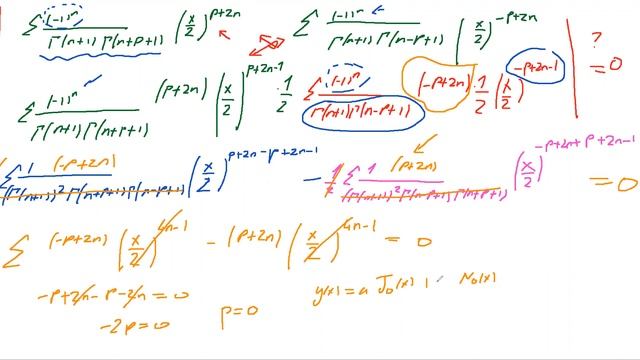 ∑ (-1)ⁿ / Γ(n+1) Γ(n+p+1) (x/2)^(p+2n) ∑ (-1)ⁿ / Γ(n+1) Γ(n-p+1) (x/2)^(-p+2n) ? = 0
∑ (-1)ⁿ / Γ(n+1) Γ(n+p+1) (p+2n) (x/2)^(p+2n-1) · 1/2 ∑ (-1)ⁿ / Γ(n+1) Γ(n-p+1) (-p+2n) · 1/2 (x/2)^(-p+2n-1)
∑ 1 (-p+2n) / Γ(n+1)² Γ(n+p+1) Γ(n-p+1) (x/2)^(p+2n-p+2n-1) - 1/2 ∑ 1 (p+2n) / Γ(n+1)² Γ(n-p+1) Γ(n+p+1) (x/2)^(-p+2n+p+2n-1) = 0
∑ (-p+2n) (x/2)^(4n-1) - (p+2n) (x/2)^(4n-1) = 0
-p+2n-p-2n = 0 y(x) = a J₀(x) + N₀(x)
-2p=0 p=0